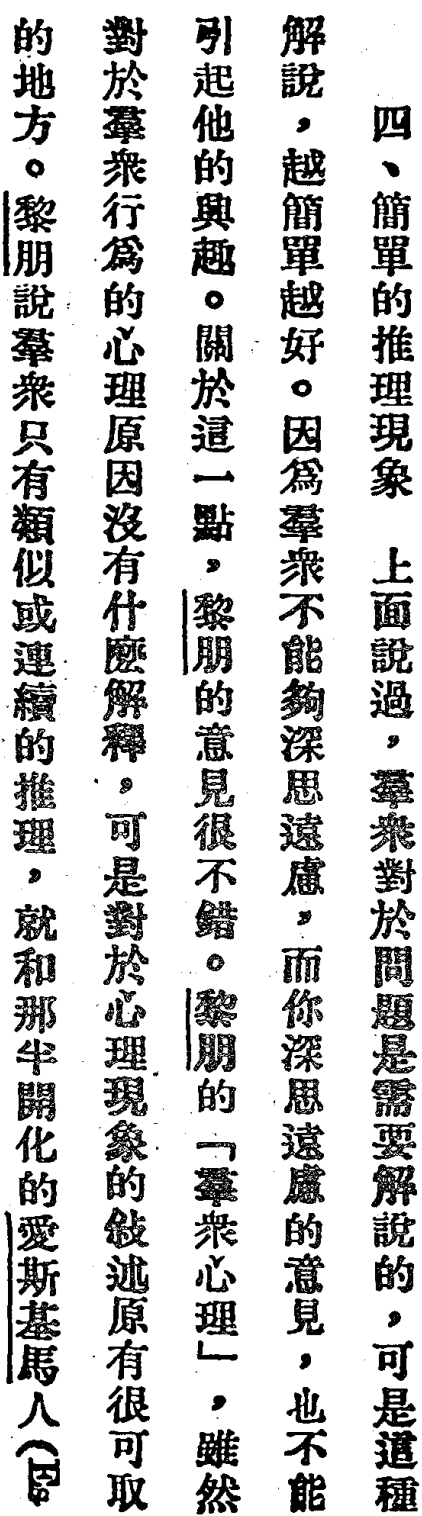 四、簡單的推理現象　上面說過，羣衆對於問題是需要解說的，可是這種
解說，越簡單越好。因爲羣衆不能夠深思遠慮，而你深思遠慮的意見，也不能
引起他的興趣。關於這一點，黎朋的意見很不錯。黎朋的「羣衆心理」，雖然
對於羣衆行爲的心理原因沒有什麼解釋，可是對於心理現象的敍述原有很可取
的地方。黎朋說羣衆只有類似或連續的推理，就和那半開化的愛斯基馬人（